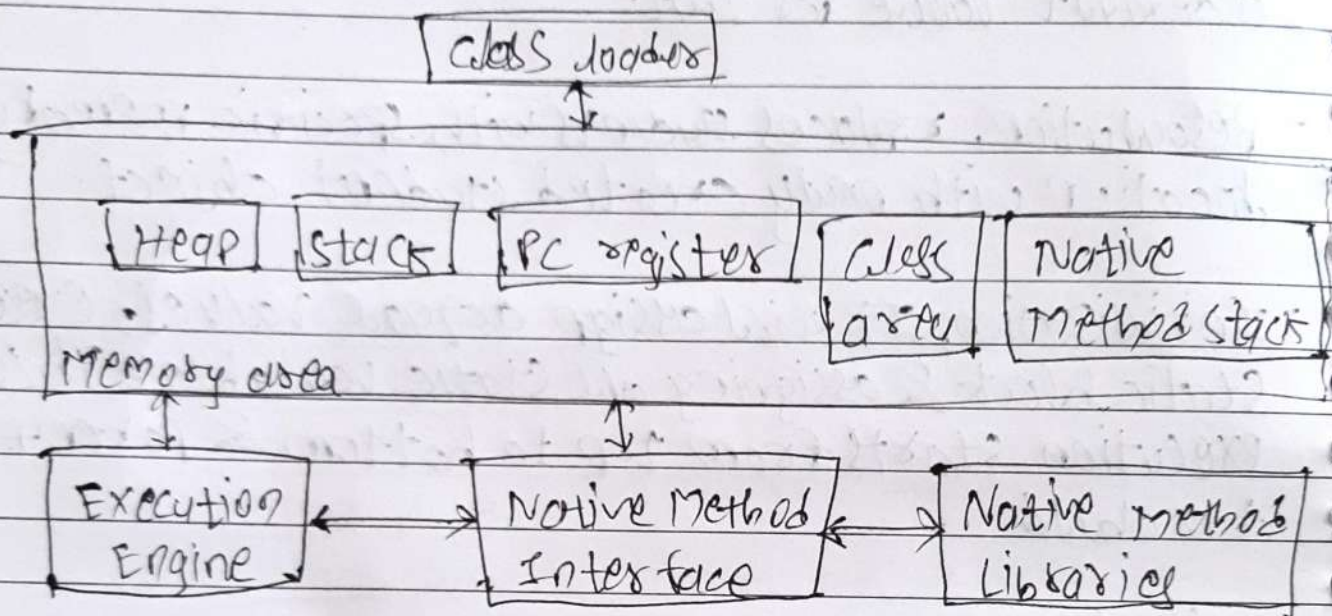 Class loader
Heap
Stack
PC register
Class
area
Native
Method Stack
Memory area
Execution
Engine
Native Method
Interface
Native Method
Libraries